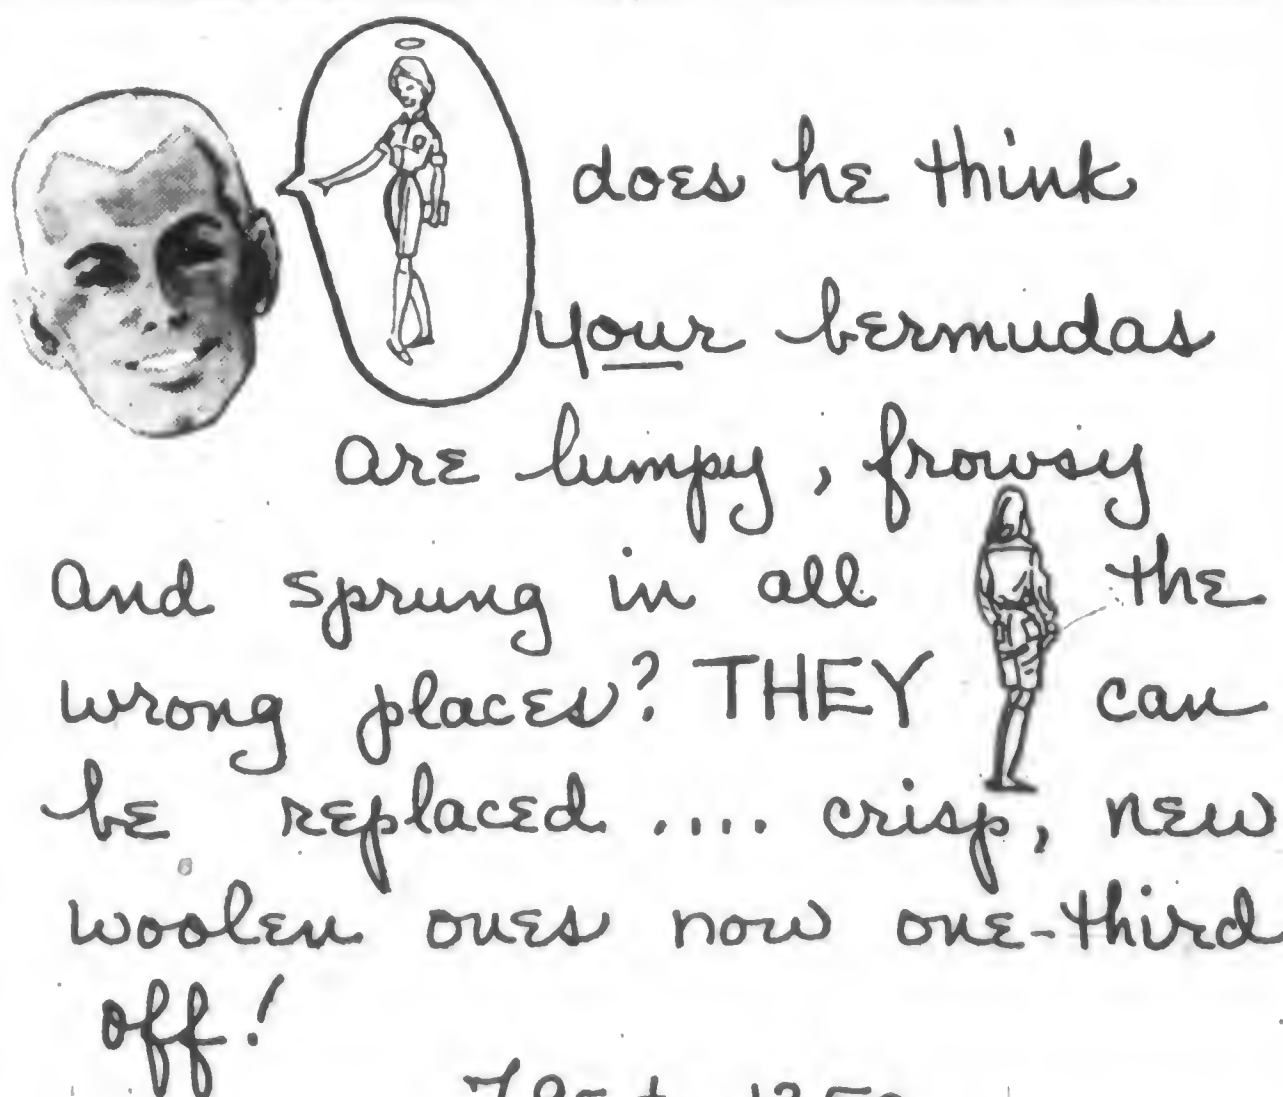 does he think
your bermudas
are lumpy, frowsy
and sprung in all the
wrong places? THEY can
be replaced .... crisp, new
woolen ones now one-third
off!